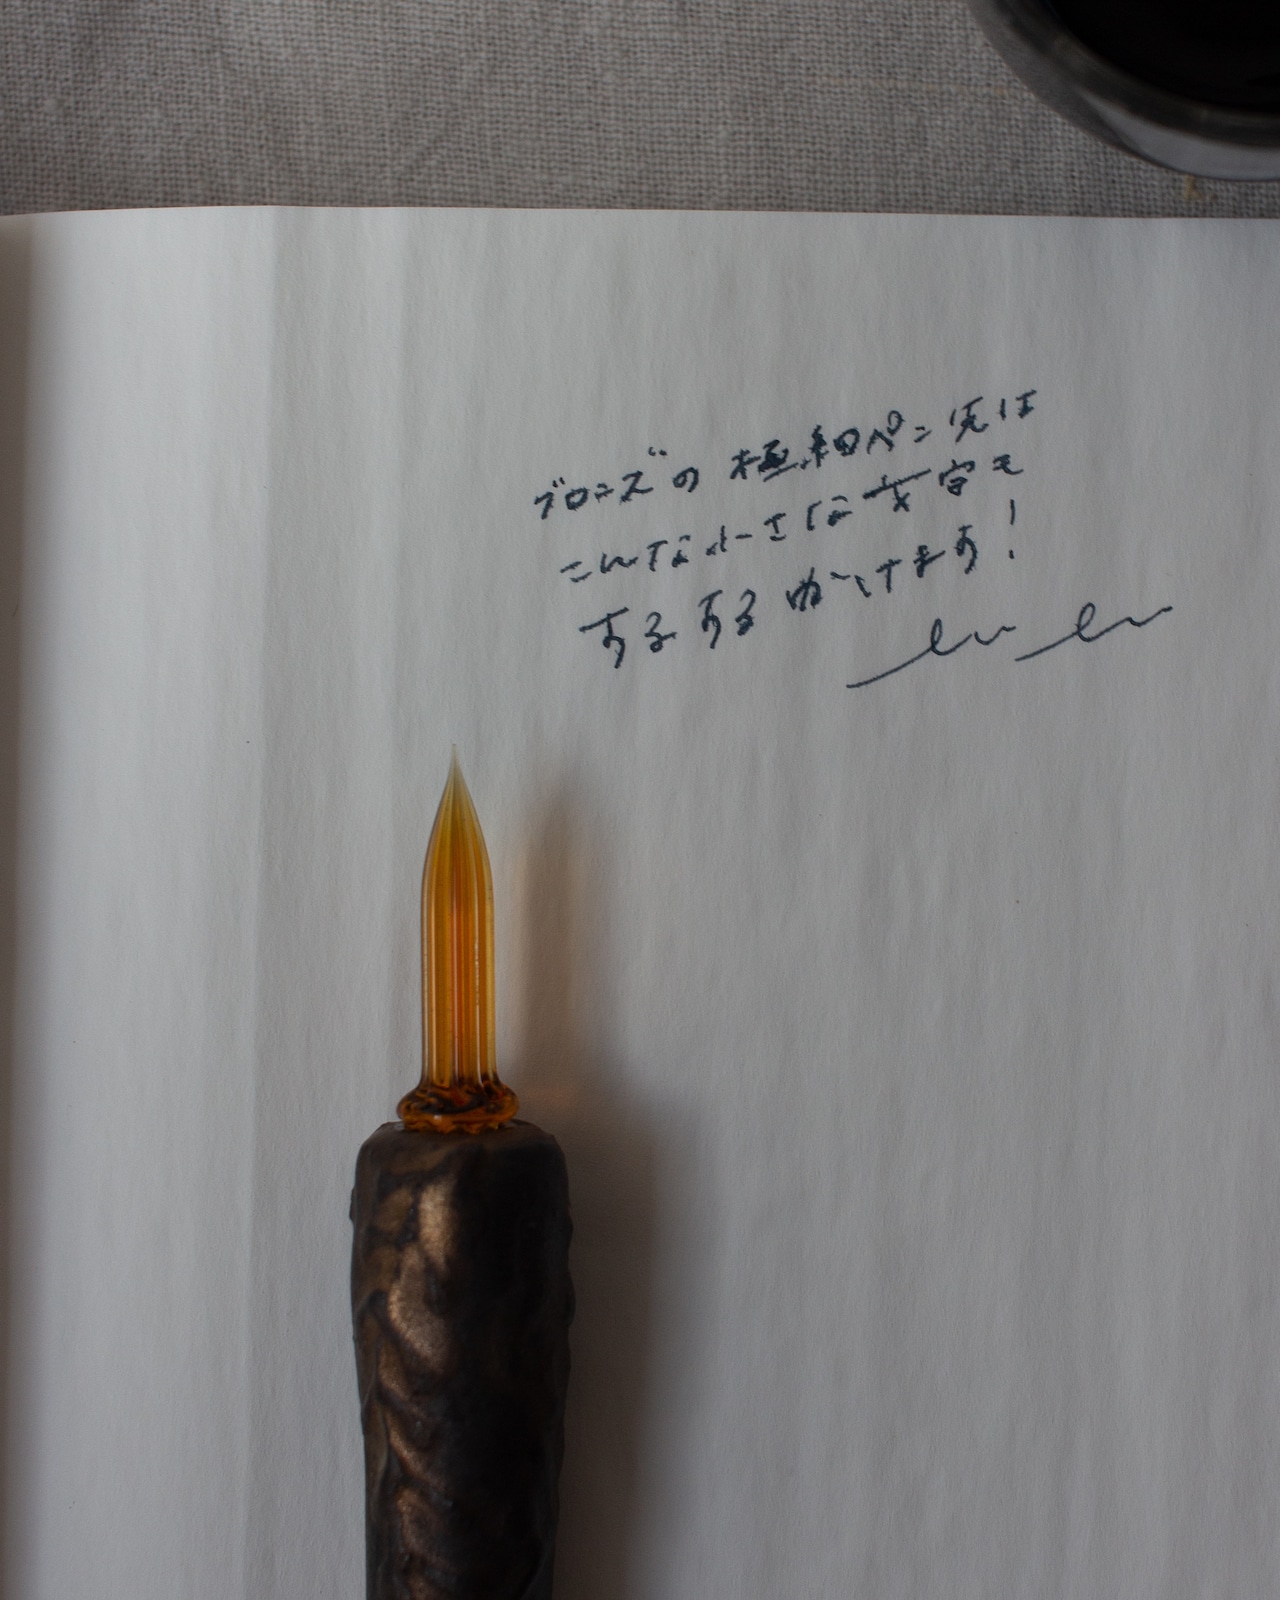 ブロンズの極細ペン先は
こんな小さな文字も
するするかけます!